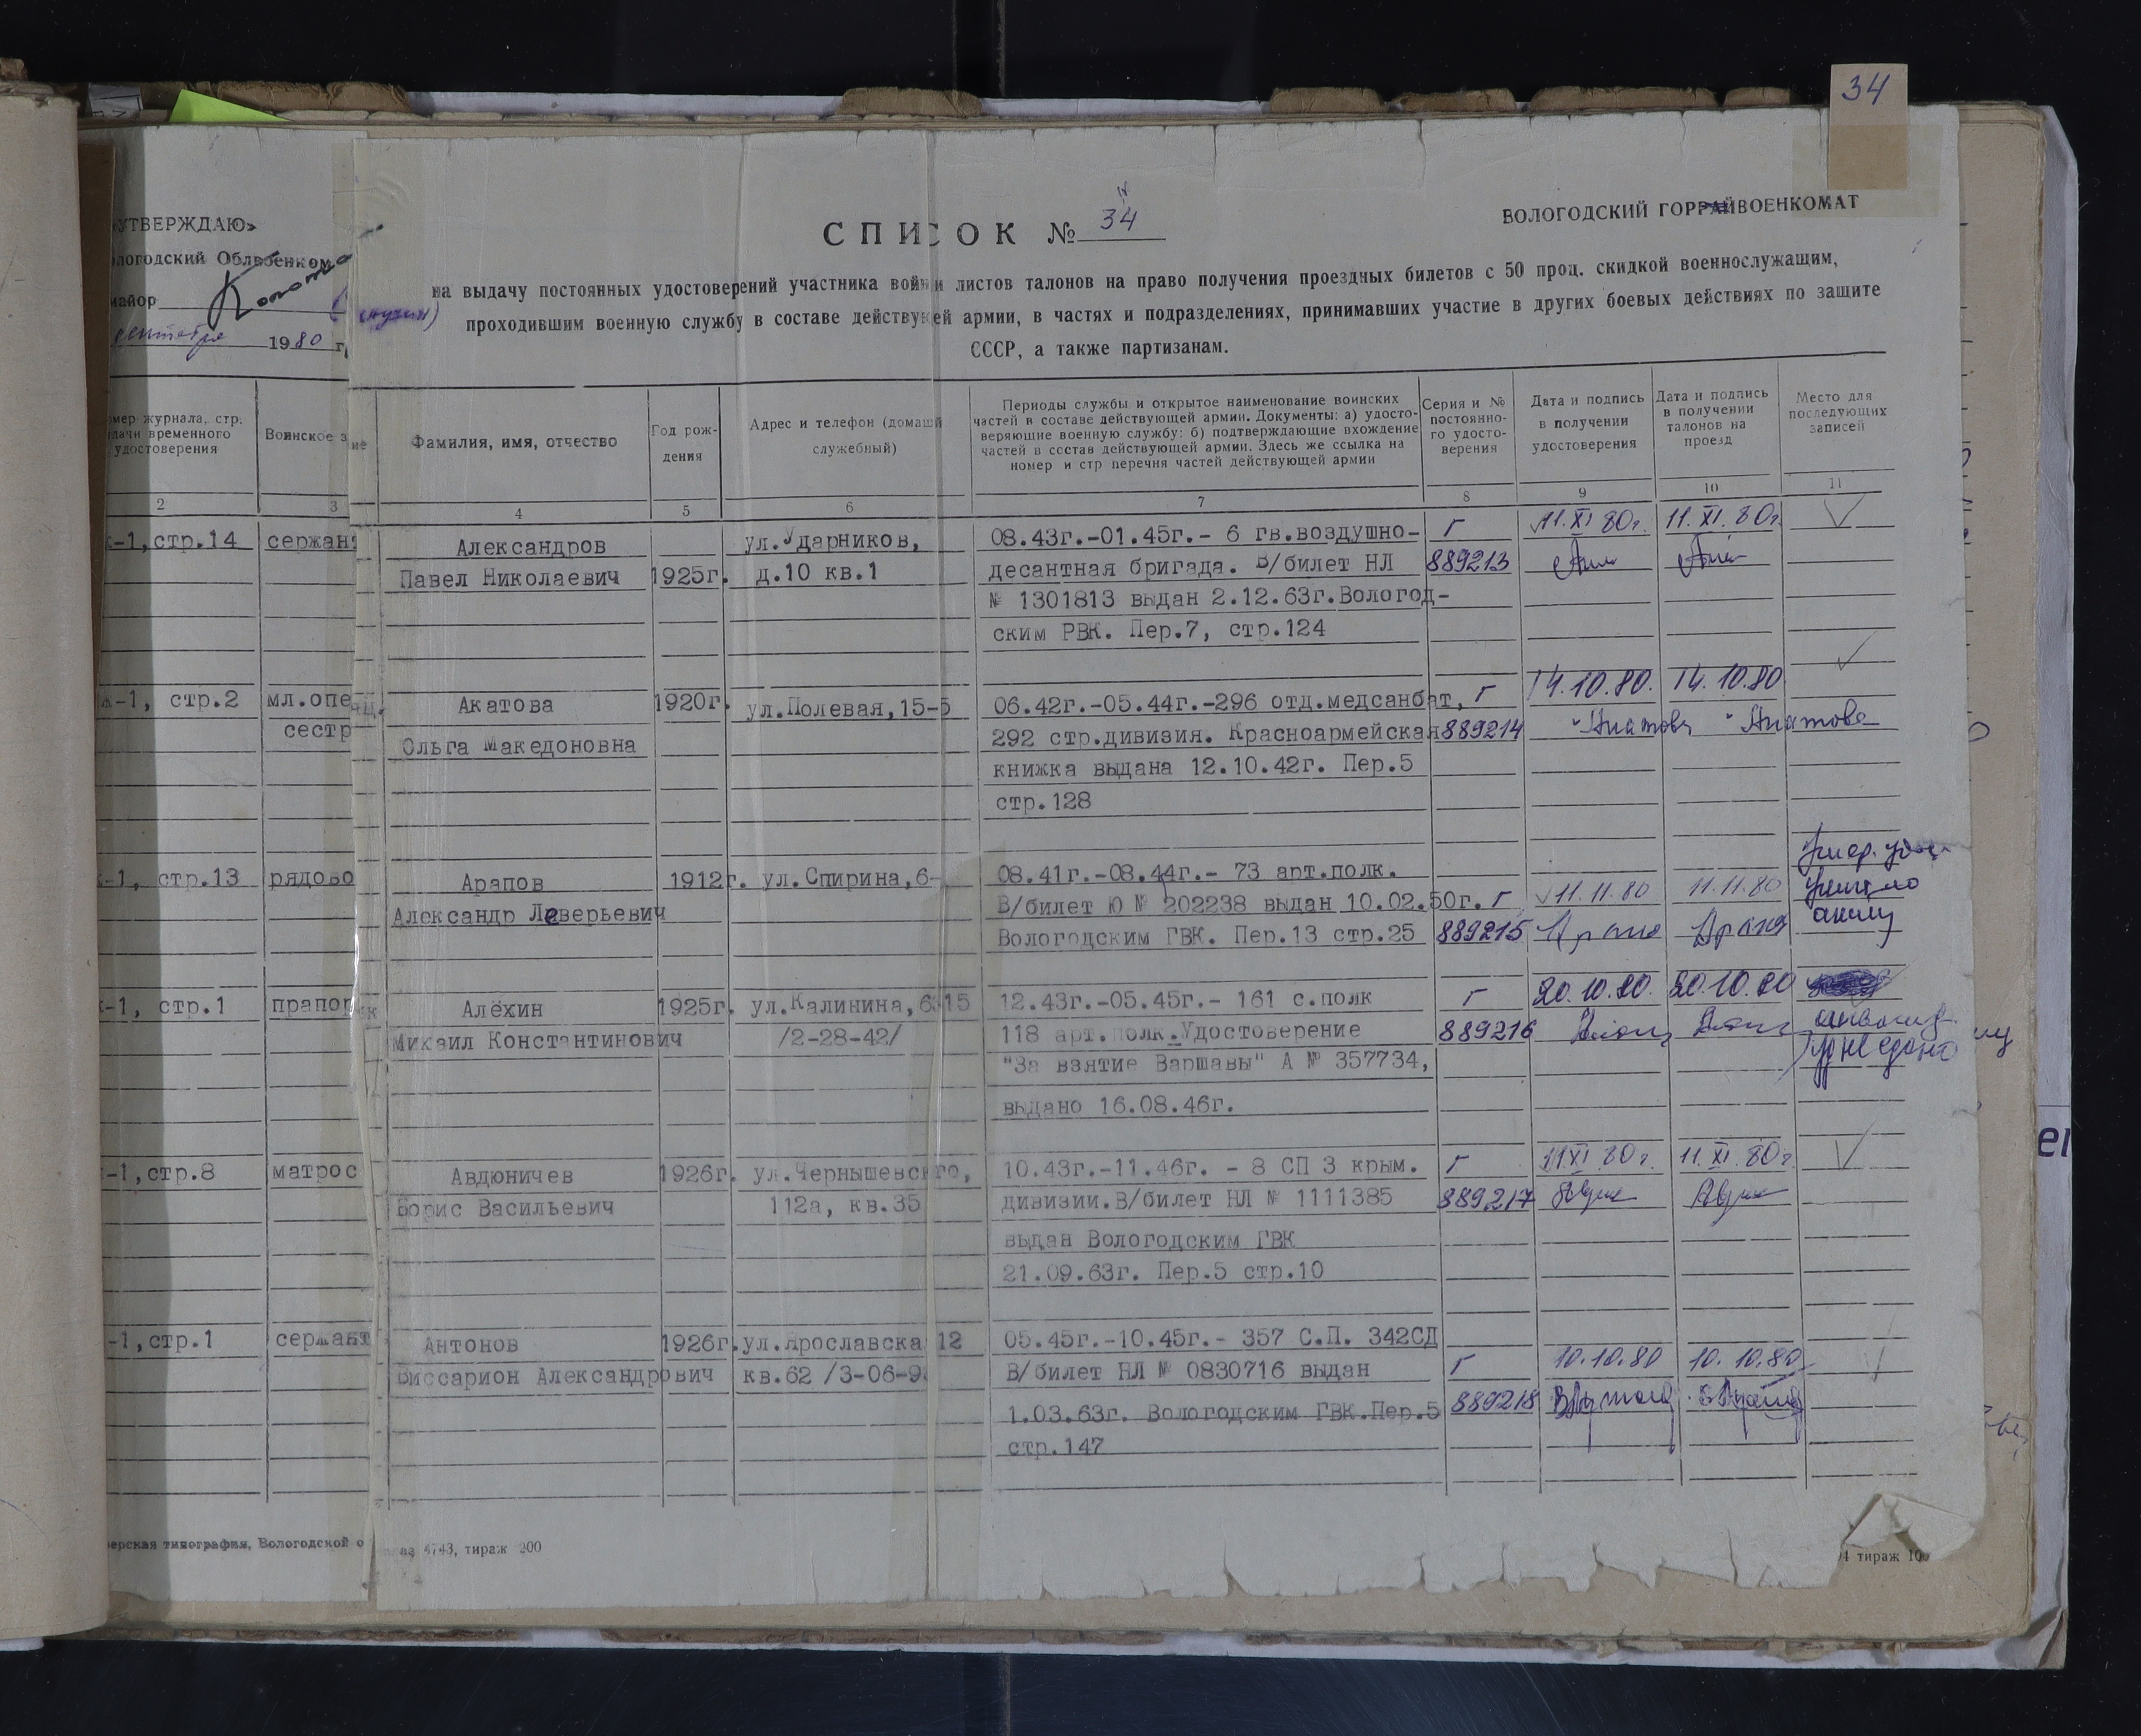 34
«УТВЕРЖДАЮ»
ологодский Облвоенком
майор
сентября 1980 г.
СПИСОК № 34
ВОЛОГОДСКИЙ ГОРРАЙВОЕНКОМАТ
на выдачу постоянных удостоверений участника войны и листов талонов на право получения проездных билетов с 50 проц. скидкой военнослужащим,
проходившим военную службу в составе действующей армии, в частях и подразделениях, принимавших участие в других боевых действиях по защите
СССР, а также партизанам.
омер журнала, стр.
дачи временного
удостоверения
Воинское з
ие
Фамилия, имя, отчество
Год рож-
дения
Адрес и телефон (домашн
служебный)
Периоды службы и открытое наименование воинских
частей в составе действующей армии. Документы: а) удосто-
веряющие военную службу; б) подтверждающие вхождение
частей в состав действующей армии. Здесь же ссылка на
номер и стр перечня частей действующей армии
Серия и №
постоянно-
го удосто-
верения
Дата и подпись
в получении
удостоверения
Дата и подпись
в получении
талонов на
проезд
Место для
последующих
записей
2 3 4 5 6 7 8 9 10 11
к-1,стр.14 сержант Александров ул.Ударников, 08.43г.-01.45г.- 6 гв.воздушно- Г 11.XI 80г. 11.XI.80г.
Павел Николаевич 1925г. д.10 кв.1 десантная бригада. В/билет НЛ 889213
№ 1301813 выдан 2.12.63г.Вологод-
ским РВК. Пер.7, стр.124
ж-1, стр.2 мл.опе Акатова 1920г. ул.Полевая,15-5 06.42г.-05.44г.-296 отд.медсанбат, Г 14.10.80. 14.10.80
сестр Ольга Македоновна 292 стр.дивизия. Красноармейская 889214 Акатова Акатова
книжка выдана 12.10.42г. Пер.5
стр.128
к-1, стр.13 рядово Арапов 1912г. ул.Спирина,6- 08.41г.-08.44г.- 73 арт.полк.
Александр Лаверьевич В/билет Ю № 202238 выдан 10.02.50г. Г 11.11.80 11.11.80
Вологодским ГВК. Пер.13 стр.25 889215
к-1, стр.1 прапор Алёхин 1925г. ул.Калинина,6 15 12.43г.-05.45г.- 161 с.полк Г 20.10.80. 20.10.80
Михаил Константинович /2-28-42/ 118 арт.полк.Удостоверение 889216
"За взятие Варшавы" А № 357734,
выдано 16.08.46г.
-1,стр.8 матрос Авдюничев 1926г. ул.Чернышевского, 10.43г.-11.46г. - 8 СП 3 крым. Г 11 XI 80г. 11.XI.80г.
Борис Васильевич 112а, кв.35 дивизии.В/билет НЛ № 1111385 889217
выдан Вологодским ГВК
21.09.63г. Пер.5 стр.10
-1,стр.1 сержант Антонов 1926г. ул.Ярославска 12 05.45г.-10.45г.- 357 С.П. 342СД
Виссарион Александрович кв.62 /3-06-9 В/билет НЛ № 0830716 выдан Г 10.10.80 10.10.80
1.03.63г. Вологодским ГВК.Пер.5 889218
стр.147
ерская типография, Вологодской о
аз 4743, тираж 200
4 тираж 10